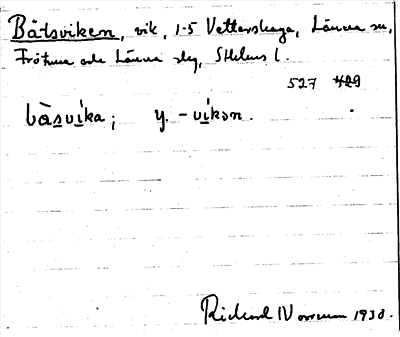 Båtsviken, vik, 1-5 Vettershaga, Länna sn,
Frötuna och Länna slg, Sthlms l.
527 429
bå̀svíka; y. -víkən.
Richard Norrman 1930.